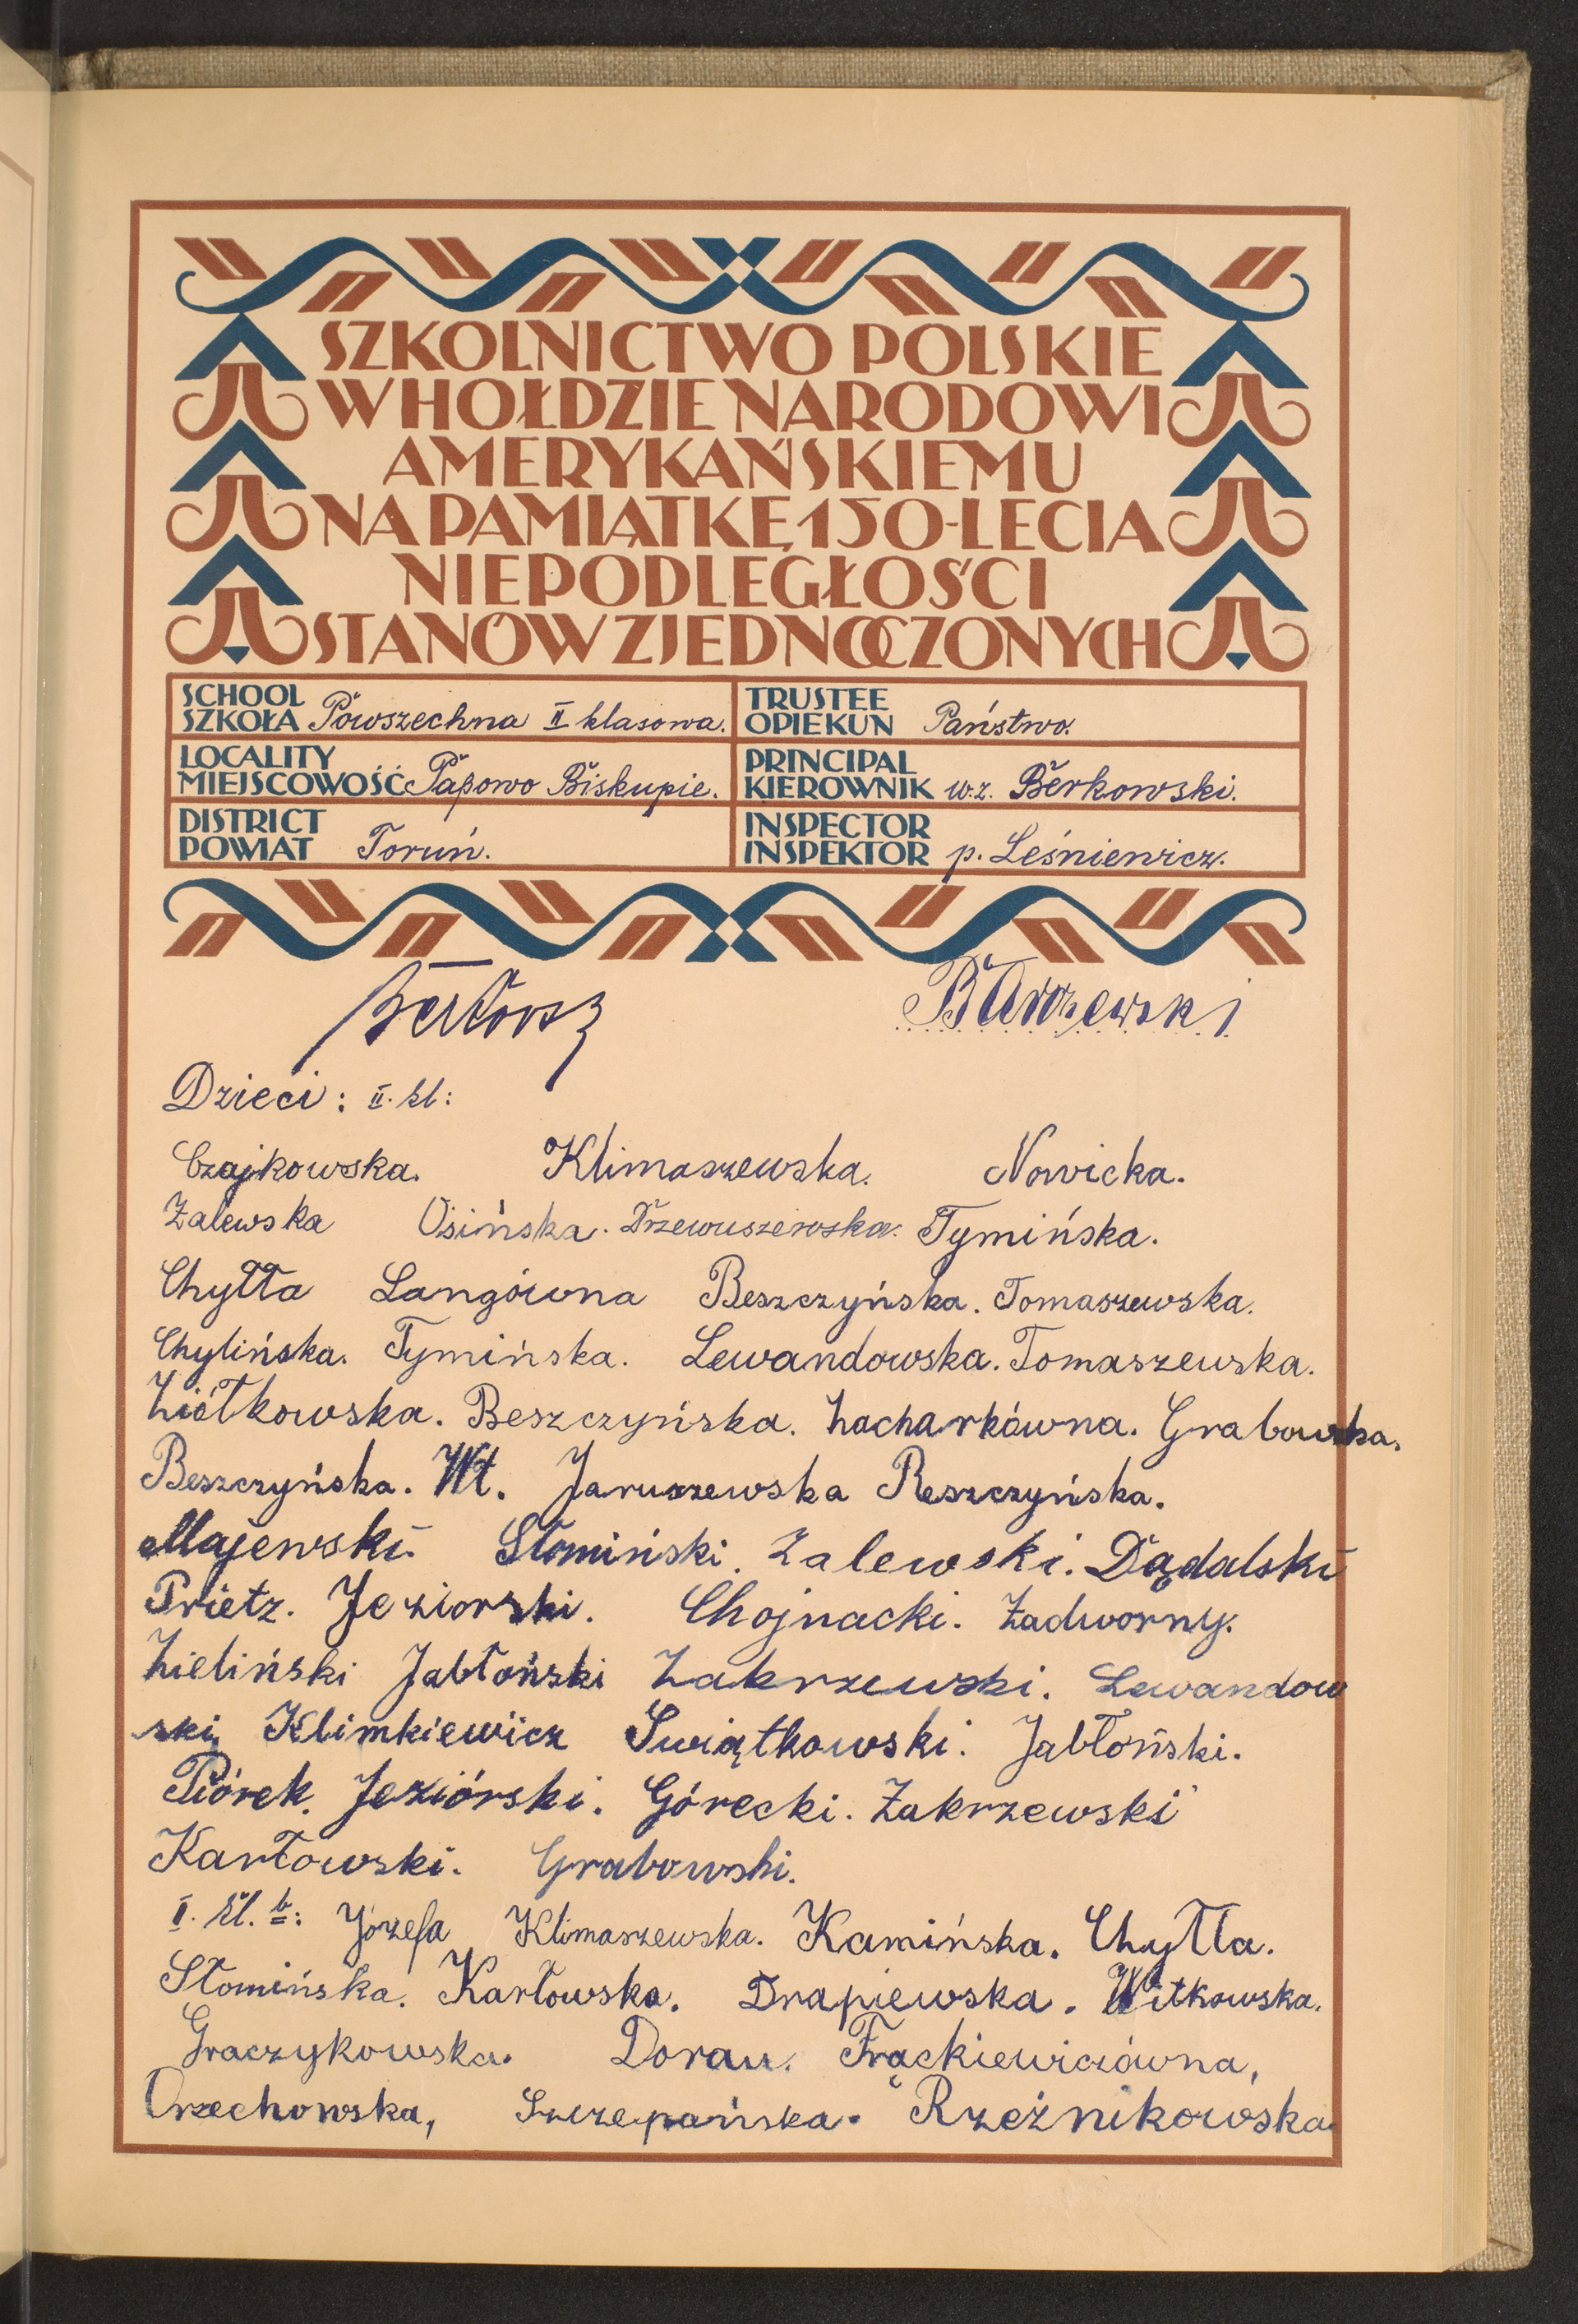 SZKOLNICTWO POLSKIE
W HOŁDZIE NARODOWI
AMERYKAŃSKIEMU
NA PAMIĄTKĘ 150-LECIA
NIEPODLEGŁOŚCI
STANÓW ZJEDNOCZONYCH
SCHOOL
SZKOŁA Powszechna II klasowa.
TRUSTEE
OPIEKUN Państwo.
LOCALITY
MIEJSCOWOŚĆ Papowo Biskupie.
PRINCIPAL
KIEROWNIK w.z. Berkowski.
DISTRICT
POWIAT Toruń.
INSPECTOR
INSPEKTOR p. Leśniewicz.
Dzieci: II. kl:
Czajkowska. Klimaszewska. Nowicka.
Zalewska Osińska. Drzewuszewska. Tymińska.
Chyłła Langówna Beszczyńska. Tomaszewska.
Chylińska. Tymińska. Lewandowska. Tomaszewska.
Ziółkowska. Beszczyńska. Zacharkówna. Grabowska.
Beszczyńska. Wł. Jaruszewska Reszczyńska.
Majewski. Słomiński. Zalewski. Dądalski
Prietz. Jeziorski. Chojnacki. Zadworny.
Zieliński Jabłoński Zakrzewski. Lewandow
ski, Klimkiewicz Swiątkowski. Jabłoński.
Piórek. Jeziórski. Górecki. Zakrzewski
Karłowski. Grabowski.
I. kl. b: Józefa Klimaszewska. Kamińska. Chyłła.
Słomińska. Karłowska. Drapiewska. Witkowska.
Graczykowska. Dorau. Frąckiewiczówna,
Orzechowska, Szczepańska. Rzeźnikowska.